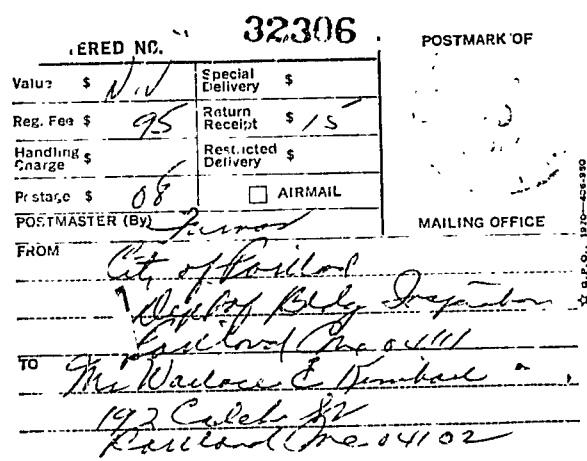 32306
ERED NO.
POSTMARK OF
Value $
Special Delivery $
Reg. Fee $ 95
Return Receipt $ 15
Handling Charge $
Restricted Delivery $
Postage $ 08
☐ AIRMAIL
POSTMASTER (By)
MAILING OFFICE
FROM City of Portland
Dept of Bldg Inspection
Portland Me 04111
TO Mr Wallace E Kimball
192 Caleb St
Portland Me 04102
☆ G.P.O. 1970—